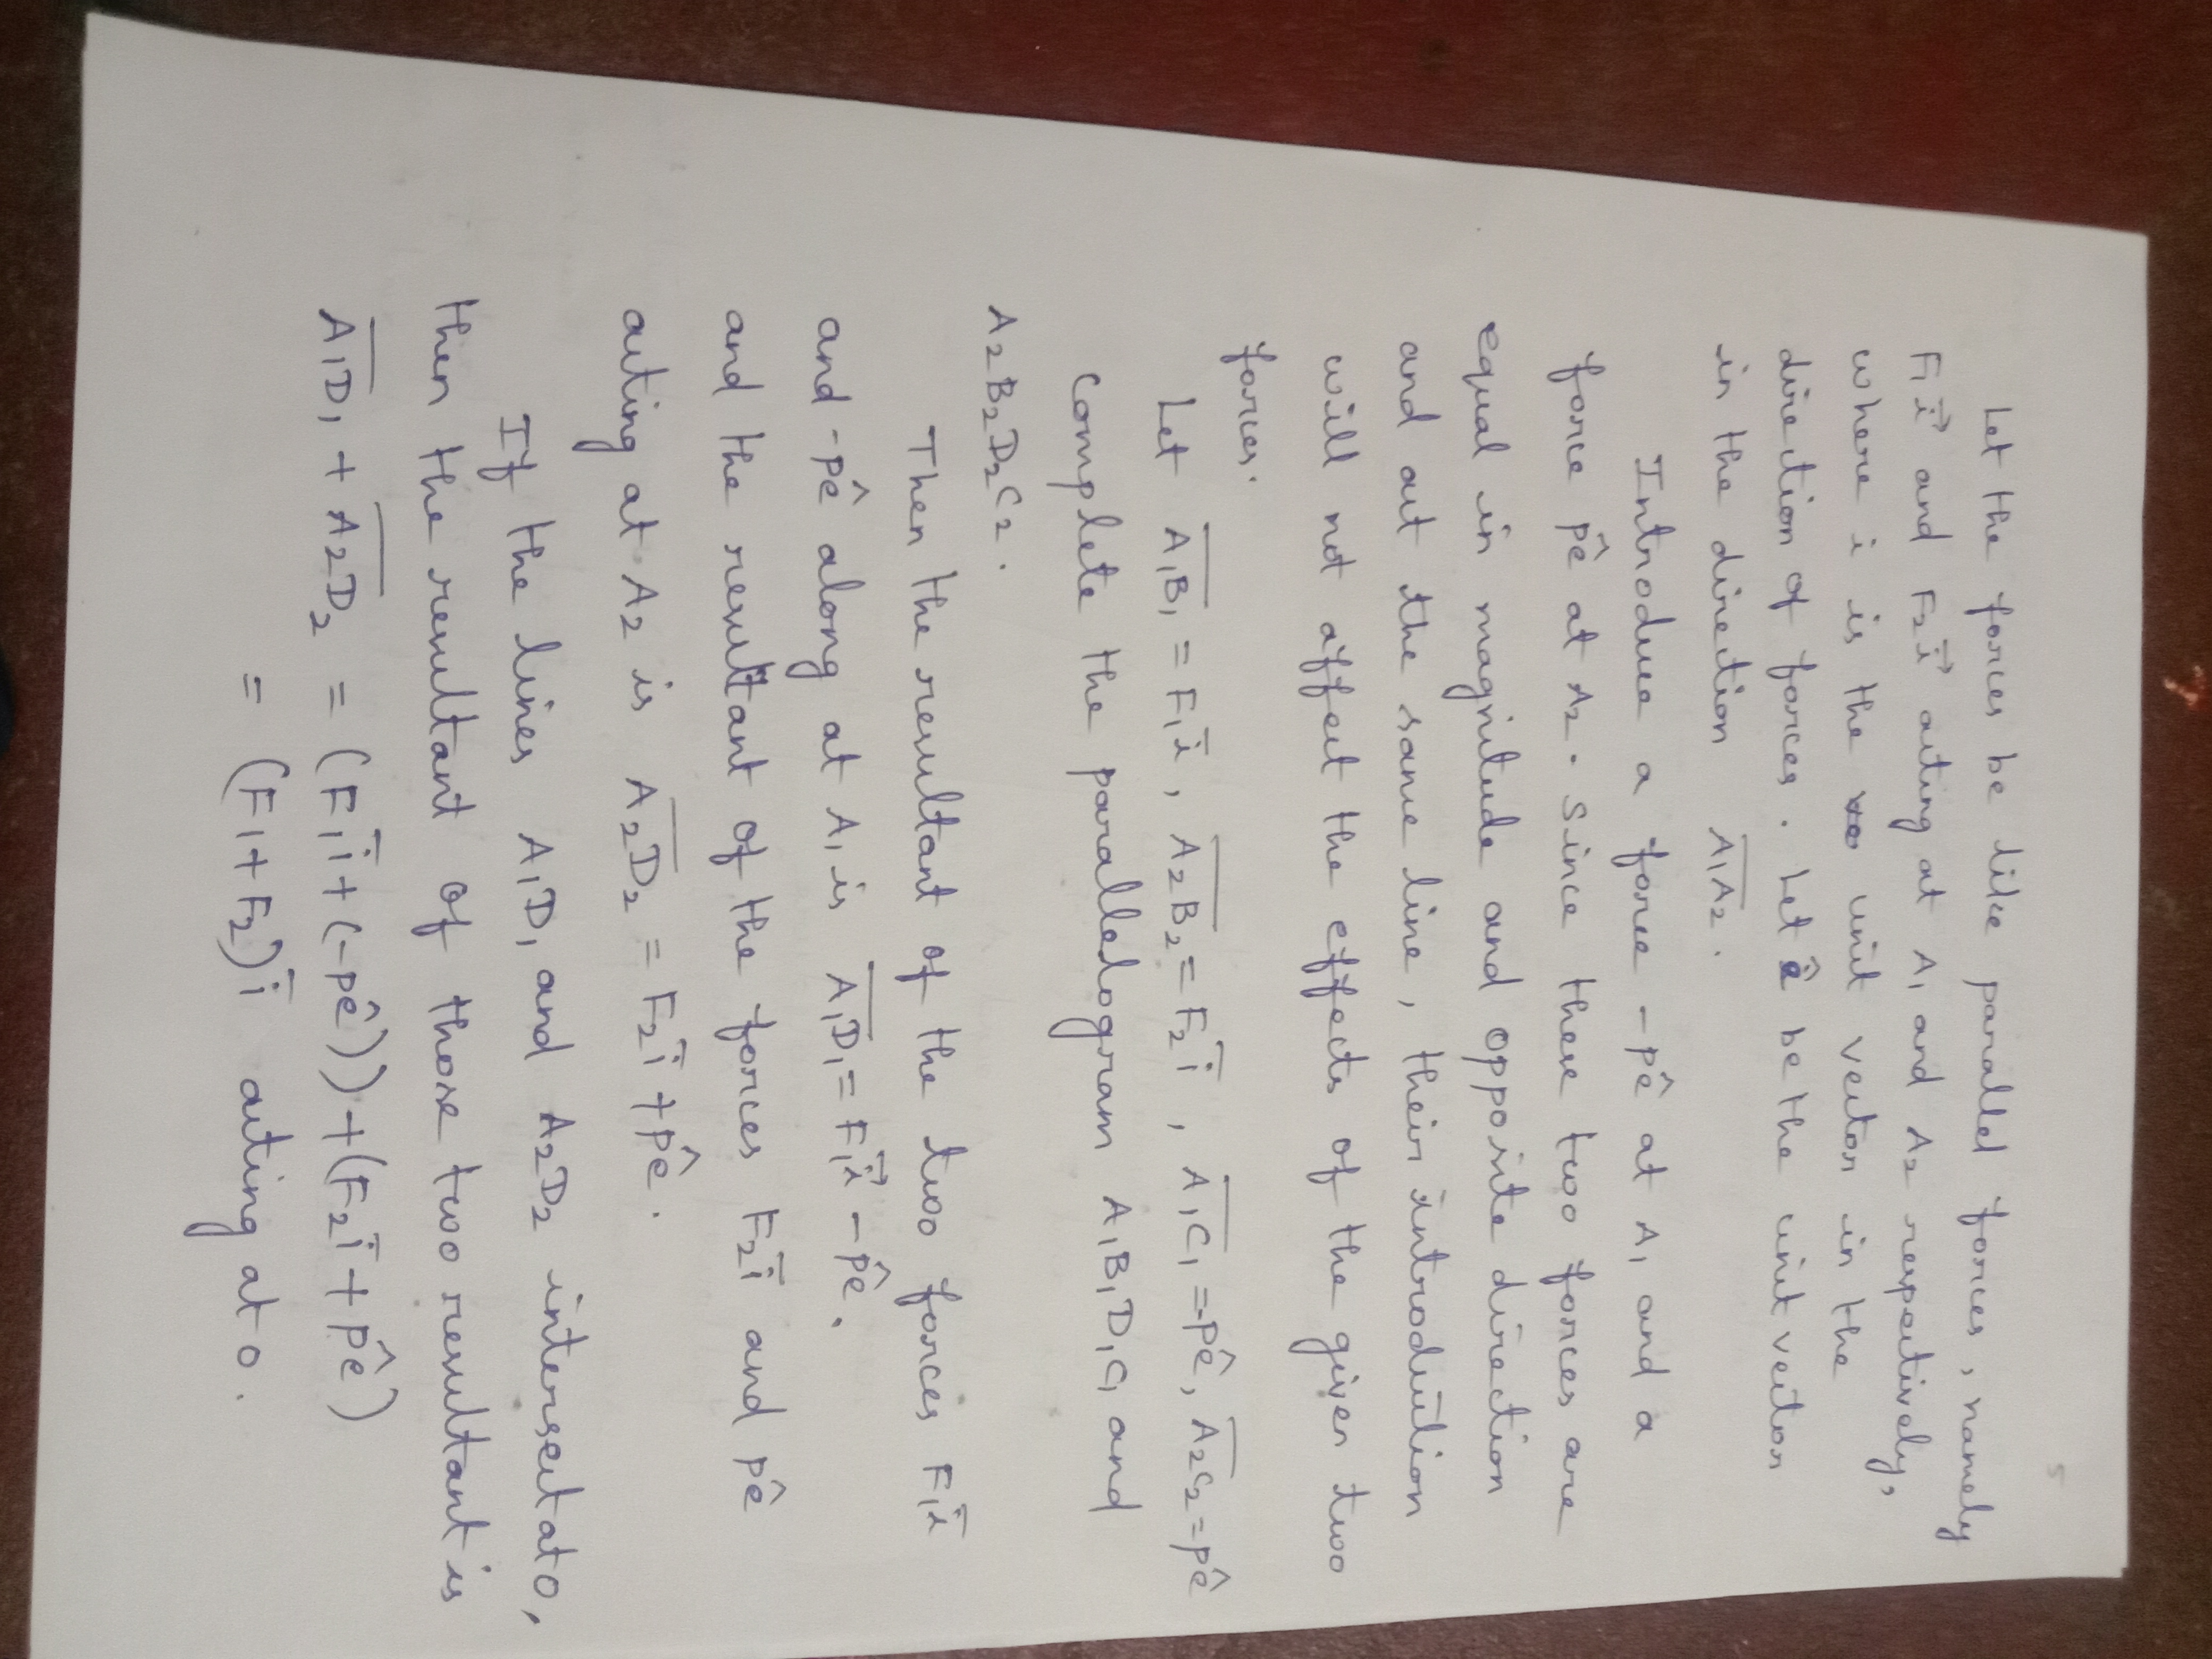 Let the forces be like parallel forces, namely
F₁i⃗ and F₂i⃗ acting at A₁ and A₂ respectively,
where i is the unit vector in the
direction of forces. Let ê be the unit vector
in the direction A̅₁A̅₂.
Introduce a force -pê at A₁ and a
force pê at A₂. Since these two forces are
equal in magnitude and opposite direction
and act at the same line, their introduction
will not affect the effects of the given two
forces.
Let A̅₁B̅₁ = F₁i̅, A̅₂B̅₂ = F₂i̅, A̅₁C̅₁ = -pê, A̅₂C̅₂ = pê
Complete the parallelogram A₁B₁D₁C₁ and
A₂B₂D₂C₂.
Then the resultant of the two forces F₁i̅
and -pê along at A₁ is A̅₁D̅₁ = F₁i⃗ - pê.
and the resultant of the forces F₂i̅ and pê
acting at A₂ is A̅₂D̅₂ = F₂i̅ + pê.
If the lines A₁D₁ and A₂D₂ intersect at O,
then the resultant of those two resultant is
A̅₁D̅₁ + A̅₂D̅₂ = (F₁i̅ + (-pê)) + (F₂i̅ + pê)
= (F₁ + F₂)i̅ acting at O.